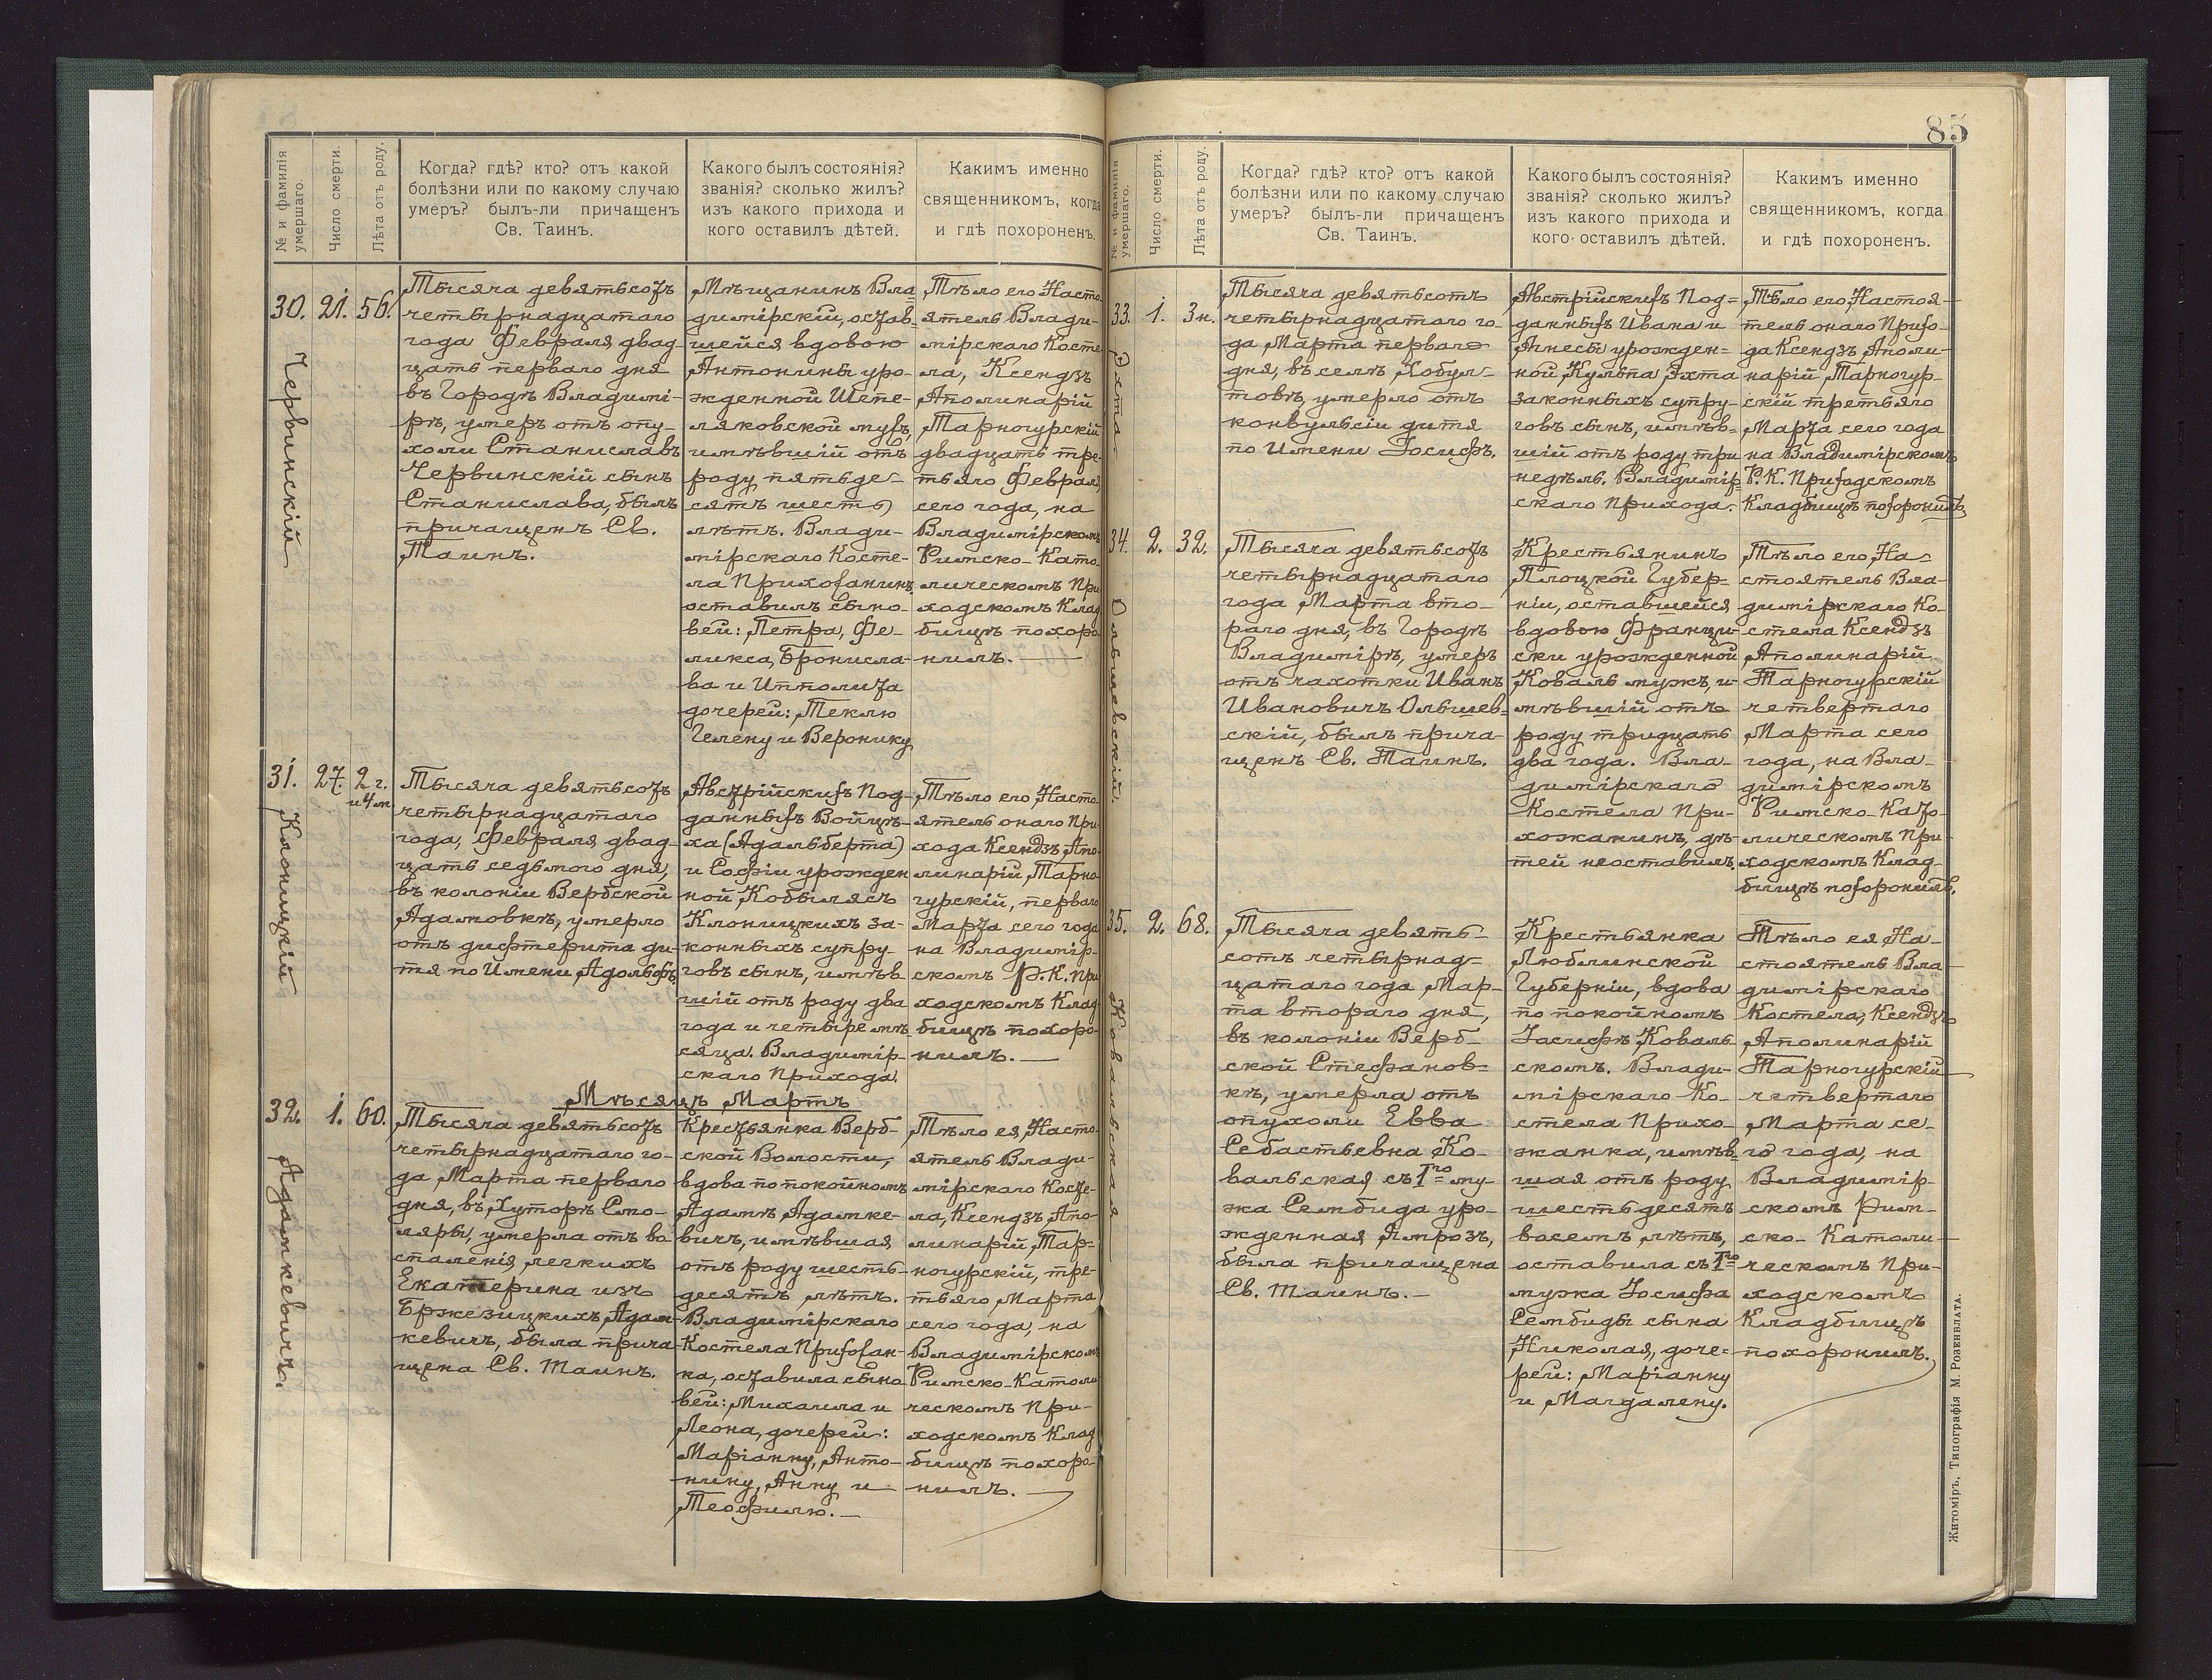 85
№ и фамилія умершаго.
Число смерти.
Лѣта отъ роду.
Когда? гдѣ? кто? отъ какой
болѣзни или по какому случаю
умеръ? былъ-ли причащенъ
Св. Таинъ.
Какого былъ состоянія?
званія? сколько жилъ?
изъ какого прихода и
кого оставилъ дѣтей.
Какимъ именно
священникомъ, когда
и гдѣ похороненъ.
30. 21. 56.
Червинскій
Тысяча девятьсотъ
четырнадцатаго
года Февраля двад-
цать перваго дня
въ Городѣ Владимі-
рѣ, умеръ отъ опу-
холи Станиславъ
Червинскій сынъ
Станислава, былъ
причащенъ Св.
Таинъ.
Мѣщанинъ Вла-
димірскій, остав-
шейся вдовою
Антонины уро-
жденной Шепе-
ляковской мужъ,
имѣвшій отъ
роду пятьде-
сятъ шесть
лѣтъ. Влади-
мірскаго Косте-
ла Прихожанинъ,
оставилъ сыно-
вей: Петра, Фе-
ликса, Бронисла-
ва и Ипполита
дочерей: Теклю
Гелену и Веронику
Тѣло его, Насто-
ятель Влади-
мірскаго Косте-
ла, Ксендзъ
Аполинарій
Тарногурскій
двадцать тре-
тьяго Февраля
сего года, на
Владимірскомъ
Римско-Като-
лическомъ При-
ходскомъ Клад-
бищѣ похоро-
нилъ.
31. 27. 2 г.
и 4 м.
Клоницкій
Тысяча девятьсотъ
четырнадцатаго
года, Февраля двад-
цать седьмого дня,
въ колоніи Вербской
Адамовкѣ, умерло
отъ дифтерита ди-
тя по Имени Адольфъ.
Австрійскихъ Под-
данныхъ Войцѣ-
ха (Адальберта)
и Софіи урожден
ной Кобылясъ
Клоницкихъ за-
конныхъ супру-
говъ сынъ, имѣв
шій отъ роду два
года и четыре мѣ-
сяца. Владимір-
скаго Прихода.
Тѣло его, Насто-
ятель онаго При-
хода Ксендзъ Апо-
линарій, Тарно-
гурскій, перваго
Марта сего года
на Владимір-
скомъ Р. К. При-
ходскомъ Клад-
бищѣ похоро-
нилъ.
Мѣсяцъ Мартъ
32. 1. 60.
Адамкевичъ.
Тысяча девятьсотъ
четырнадцатаго го-
да Марта перваго
дня, въ Хуторѣ Смо-
ляры, умерла отъ во
спаленія легкихъ
Екатерина изъ
Бржезицкихъ Адам-
кевичъ, была прича-
щена Св. Таинъ.
Крестьянка Верб-
ской Волости,
вдова по покойномъ
Адамѣ Адамке-
вичъ, имѣвшая
отъ роду шесть-
десятъ лѣтъ.
Владимірскаго
Костела Прихожан-
ка, оставила сыно
вей: Михаила и
Леона, дочерей:
Маріанну, Анто-
нину, Анну и
Теофилю.
Тѣло ея, Насто-
ятель Влади-
мірскаго Косте-
ла, Ксендзъ, Апо-
линарій, Тар-
ногурскій, тре-
тьяго Марта
сего года, на
Владимірскомъ
Римско-Католи
ческомъ При-
ходскомъ Клад
бищѣ похоро-
нилъ.
№ и фамилія умершаго.
Число смерти.
Лѣта отъ роду.
Когда? гдѣ? кто? отъ какой
болѣзни или по какому случаю
умеръ? былъ-ли причащенъ
Св. Таинъ.
Какого былъ состоянія?
званія? сколько жилъ?
изъ какого прихода и
кого оставилъ дѣтей.
Какимъ именно
священникомъ, когда
и гдѣ похороненъ.
33. 1. 3 н.
Яхта
Тысяча девятьсотъ
четырнадцатаго го-
да Марта перваго
дня, въ селѣ Хобул-
товѣ, умерло отъ
конвульсіи дитя
по Имени Іосифъ.
Австрійскихъ Под-
данныхъ Ивана и
Агнесы урожден-
ной Кульпа Яхта
законныхъ супру-
говъ сынъ, имѣв-
шій отъ роду три
недѣли. Владимір-
скаго Прихода.
Тѣло его, Настоя-
тель онаго Прихо-
да Ксендзъ Аполи-
нарій Тарногур-
скій третьяго
Марта сего года
на Владимірскомъ
Р. К. Приходскомъ
Кладбищѣ похоронилъ
34. 2. 32.
Ольшевскій.
Тысяча девятьсотъ
четырнадцатаго
года Марта вто-
раго дня, въ Городѣ
Владимірѣ, умеръ
отъ чахотки Иванъ
Ивановичъ Ольшев-
скій, былъ прича-
щенъ Св. Таинъ.
Крестьянинъ
Плоцкой Губер-
ніи, оставшейся
вдовою Францис-
ки урожденной
Коваль мужъ, и-
мѣвшій отъ
роду тридцать
два года. Вла-
димірскаго
Костела При-
хожанинъ, дѣ-
тей неоставилъ.
Тѣло его, На-
стоятель Вла-
димірскаго Ко-
стела Ксендзъ
Аполинарій
Тарногурскій
четвертаго
Марта сего
года, на Вла-
димірскомъ
Римско-Като-
лическомъ При-
ходскомъ Клад-
бищѣ похоронилъ.
35. 2. 68.
Ковальская
Тысяча девять-
сотъ четырнад-
цатаго года Мар-
та втораго дня,
въ колоніи Верб-
ской Стефанов-
кѣ, умерла отъ
опухоли Евва
Себастьевна Ко-
вальская съ 1го му-
жа Сембида уро-
жденная Ямрозъ,
была причащена
Св. Таинъ.
Крестьянка
Люблинской
Губерніи, вдова
по покойномъ
Іосифѣ Коваль-
скомъ. Влади-
мірскаго Ко-
стела Прихо-
жанка, имѣв-
шая отъ роду
шестьдесятъ
восемь лѣтъ,
оставила съ 1го
мужа Іосифа
Сембиды сына
Николая, доче-
рей: Маріанну
и Магдалену.
Тѣло ея На-
стоятель Вла-
димірскаго
Костела, Ксендзъ
Аполинарій
Тарногурскій
четвертаго
Марта се-
го года, на
Владимір-
скомъ Рим-
ско-Католи-
ческомъ При-
ходскомъ
Кладбищѣ
похоронилъ.
Житоміръ, Типографія М. Розенблата.